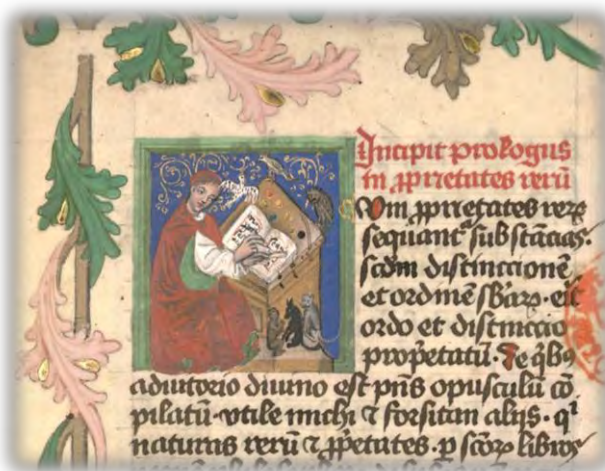 Incipit prologus
in ꝓprietates rerū
Cum ꝓprietates reꝝ
sequant᷑ substācias.
scdm distinctionē
et ordinē sbāꝝ. erit
ordo et distinctio
propͥetatū. De qͥbꝯ
adiutorio diuino est pn̄s opusculū cō
pilatū. vtile michi ⁊ forsitan alijs. qͥ
naturas rerū ⁊ ꝓpͥetates. ꝑ scōꝝ libros